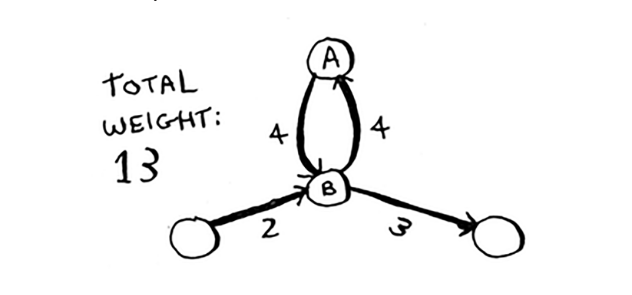 A
TOTAL
WEIGHT:
13
4 4
B
2 3